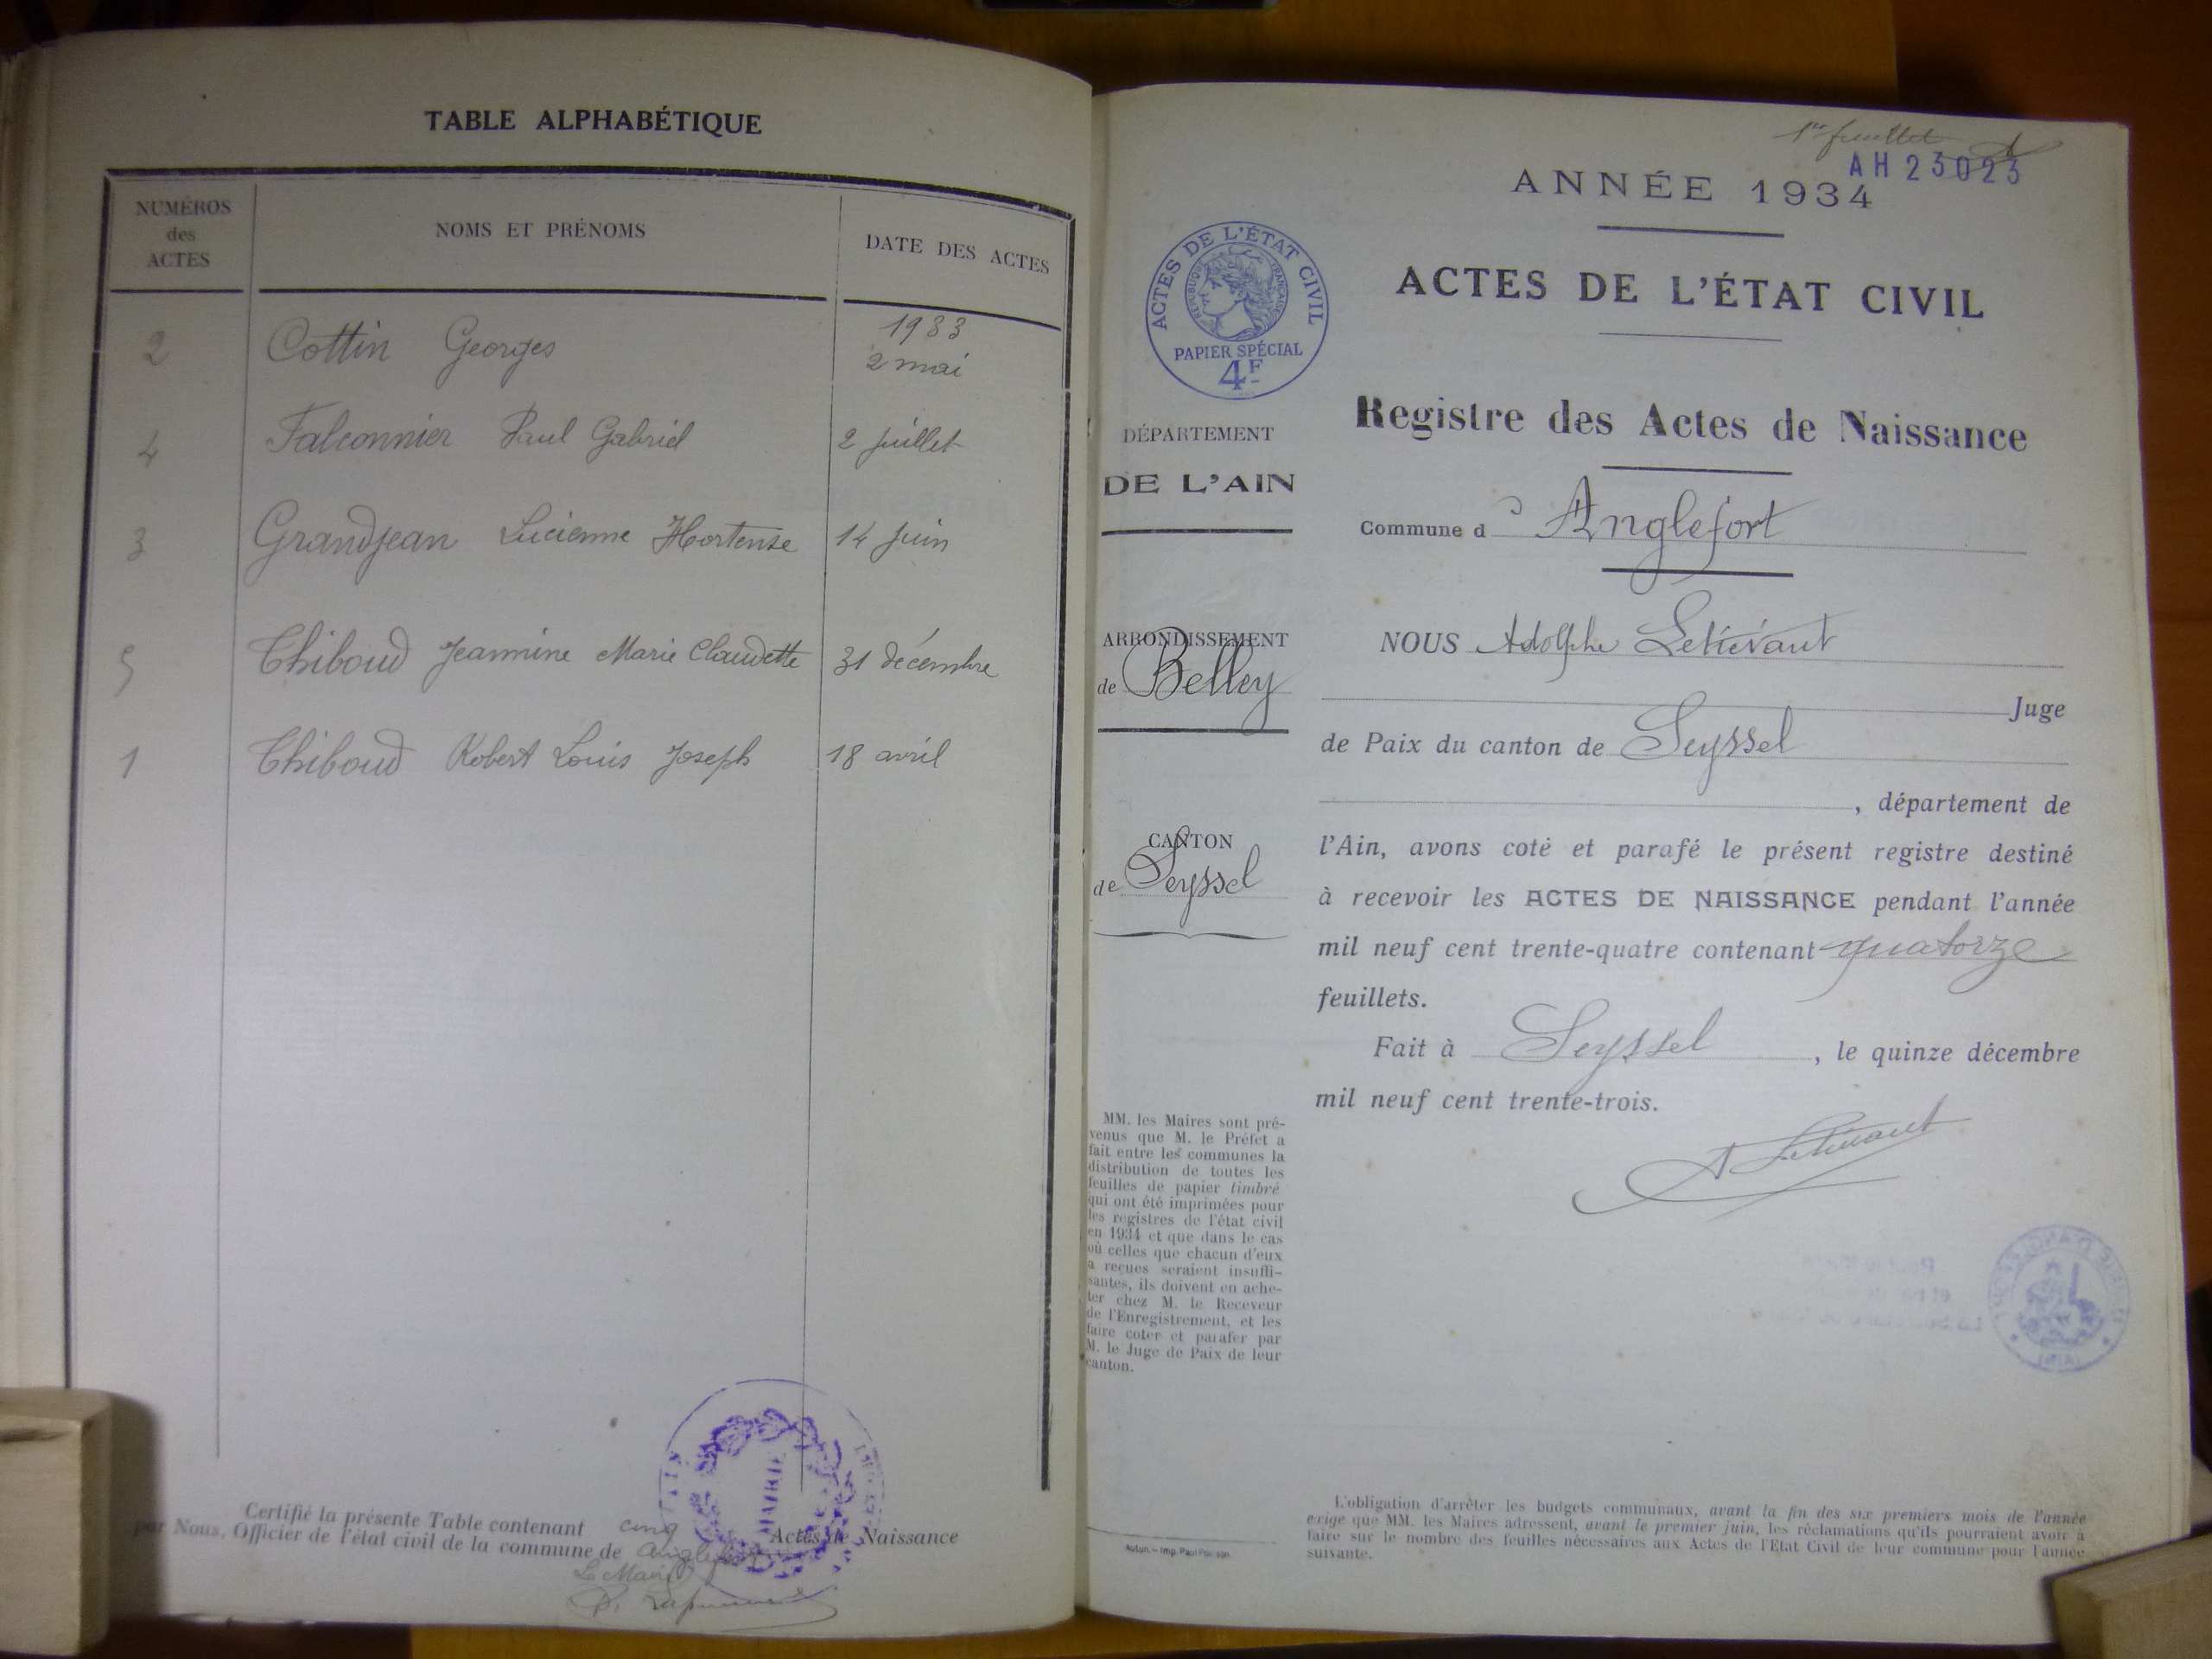 TABLE ALPHABÉTIQUE
NUMÉROS
des
ACTES
NOMS ET PRÉNOMS
DATE DES ACTES
2 Cottin Georges 1933
2 mai
4 Falconnier Paul Gabriel 2 Juillet
3 Grandjean Lucienne Hortense 14 Juin
5 Thiboud Jeannine Marie Claudette 31 décembre
1 Thiboud Robert Louis Joseph 18 avril
Certifié la présente Table contenant cinq Actes de Naissance
par Nous, Officier de l'état civil de la commune de Anglefort
Le Maire
MAIRIE
AIN
1er feuillet
AH 23023
ANNÉE 1934
ACTES DE L'ÉTAT CIVIL
RÉPUBLIQUE FRANÇAISE
PAPIER SPÉCIAL
4F
ACTES DE L'ÉTAT CIVIL
Registre des Actes de Naissance
DÉPARTEMENT
DE L'AIN
Commune d'Anglefort
ARRONDISSEMENT
de Belley
CANTON
de Seyssel
NOUS Adolphe Letiévant
Juge
de Paix du canton de Seyssel
, département de
l'Ain, avons coté et parafé le présent registre destiné
à recevoir les ACTES DE NAISSANCE pendant l'année
mil neuf cent trente-quatre contenant quatorze
feuillets.
Fait à Seyssel, le quinze décembre
mil neuf cent trente-trois.
A Letiévant
MM. les Maires sont pré-
venus que M. le Préfet a
fait entre les communes la
distribution de toutes les
feuilles de papier timbré
qui ont été imprimées pour
les registres de l'état civil
en 1934 et que dans le cas
où celles que chacun d'eux
a reçues seraient insuffi-
santes, ils doivent en ache-
ter chez M. le Receveur
de l'Enregistrement, et les
faire coter et parafer par
M. le Juge de Paix de leur
canton.
Autun. — Imp. Paul
L'obligation d'arrêter les budgets communaux, avant la fin des six premiers mois de l'année
exige que MM. les Maires adressent, avant le premier juin, les réclamations qu'ils pourraient avoir à
faire sur le nombre des feuilles nécessaires aux Actes de l'Etat Civil de leur commune pour l'année
suivante.